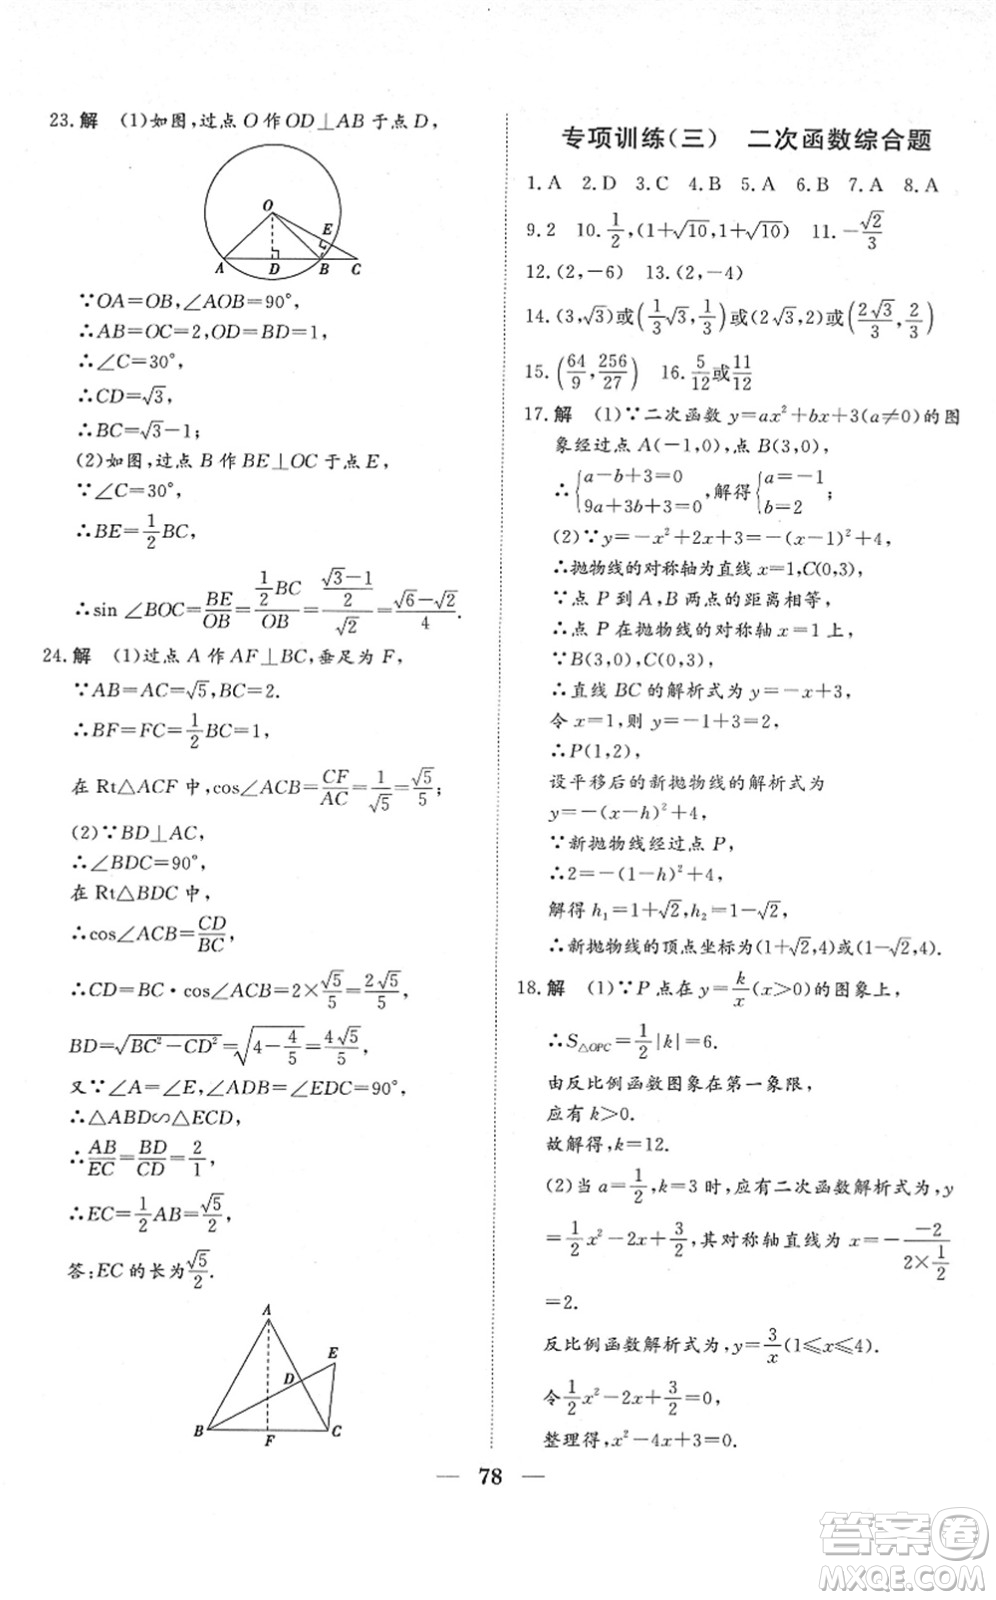 23. 解 (1)如图,过点 O 作 OD⊥AB 于点 D,
O
E
A
D
B
C
∵OA=OB,∠AOB=90°,
∴AB=OC=2,OD=BD=1,
∴∠C=30°,
∴CD=√3,
∴BC=√3-1;
(2)如图,过点 B 作 BE⊥OC 于点 E,
∵∠C=30°,
∴BE=1/2 BC,
∴sin∠BOC=BE/OB=(1/2 BC)/OB=((√3-1)/2)/√2=(√6-√2)/4.
24. 解 (1)过点 A 作 AF⊥BC,垂足为 F,
∵AB=AC=√5,BC=2.
∴BF=FC=1/2 BC=1,
在 Rt△ACF 中,cos∠ACB=CF/AC=1/√5=√5/5;
(2)∵BD⊥AC,
∴∠BDC=90°,
在 Rt△BDC 中,
∴cos∠ACB=CD/BC,
∴CD=BC·cos∠ACB=2×√5/5=2√5/5,
BD=√(BC²-CD²)=√(4-4/5)=4√5/5,
又∵∠A=∠E,∠ADB=∠EDC=90°,
∴△ABD∽△ECD,
∴AB/EC=BD/CD=2/1,
∴EC=1/2 AB=√5/2,
答:EC 的长为√5/2.
A
E
D
B
F
C
专项训练(三) 二次函数综合题
1. A 2. D 3. C 4. B 5. A 6. B 7. A 8. A
9. 2 10. 1/2,(1+√10,1+√10) 11. -√2/3
12. (2,-6) 13. (2,-4)
14. (3,√3)或(1/3√3,1/3)或(2√3,2)或(2√3/3,2/3)
15. (64/9,256/27) 16. 5/12或11/12
17. 解 (1)∵二次函数 y=ax²+bx+3(a≠0)的图
象经过点 A(-1,0),点 B(3,0),
∴{a-b+3=0 9a+3b+3=0,解得{a=-1 b=2;
(2)∵y=-x²+2x+3=-(x-1)²+4,
∴抛物线的对称轴为直线 x=1,C(0,3),
∵点 P 到 A,B 两点的距离相等,
∴点 P 在抛物线的对称轴 x=1 上,
∵B(3,0),C(0,3),
∴直线 BC 的解析式为 y=-x+3,
令 x=1,则 y=-1+3=2,
∴P(1,2),
设平移后的新抛物线的解析式为
y=-(x-h)²+4,
∵新抛物线经过点 P,
∴2=-(1-h)²+4,
解得 h₁=1+√2,h₂=1-√2,
∴新抛物线的顶点坐标为(1+√2,4)或(1-√2,4).
18. 解 (1)∵P 点在 y=k/x(x>0)的图象上,
∴S△OPC=1/2|k|=6.
由反比例函数图象在第一象限,
应有 k>0.
故解得,k=12.
(2)当 a=1/2,k=3 时,应有二次函数解析式为,y
=1/2x²-2x+3/2,其对称轴直线为 x=-(-2)/(2×1/2)
=2.
反比例函数解析式为,y=3/x(1≤x≤4).
令1/2x²-2x+3/2=0,
整理得,x²-4x+3=0,
— 78 —
答案卷
MXQE.COM